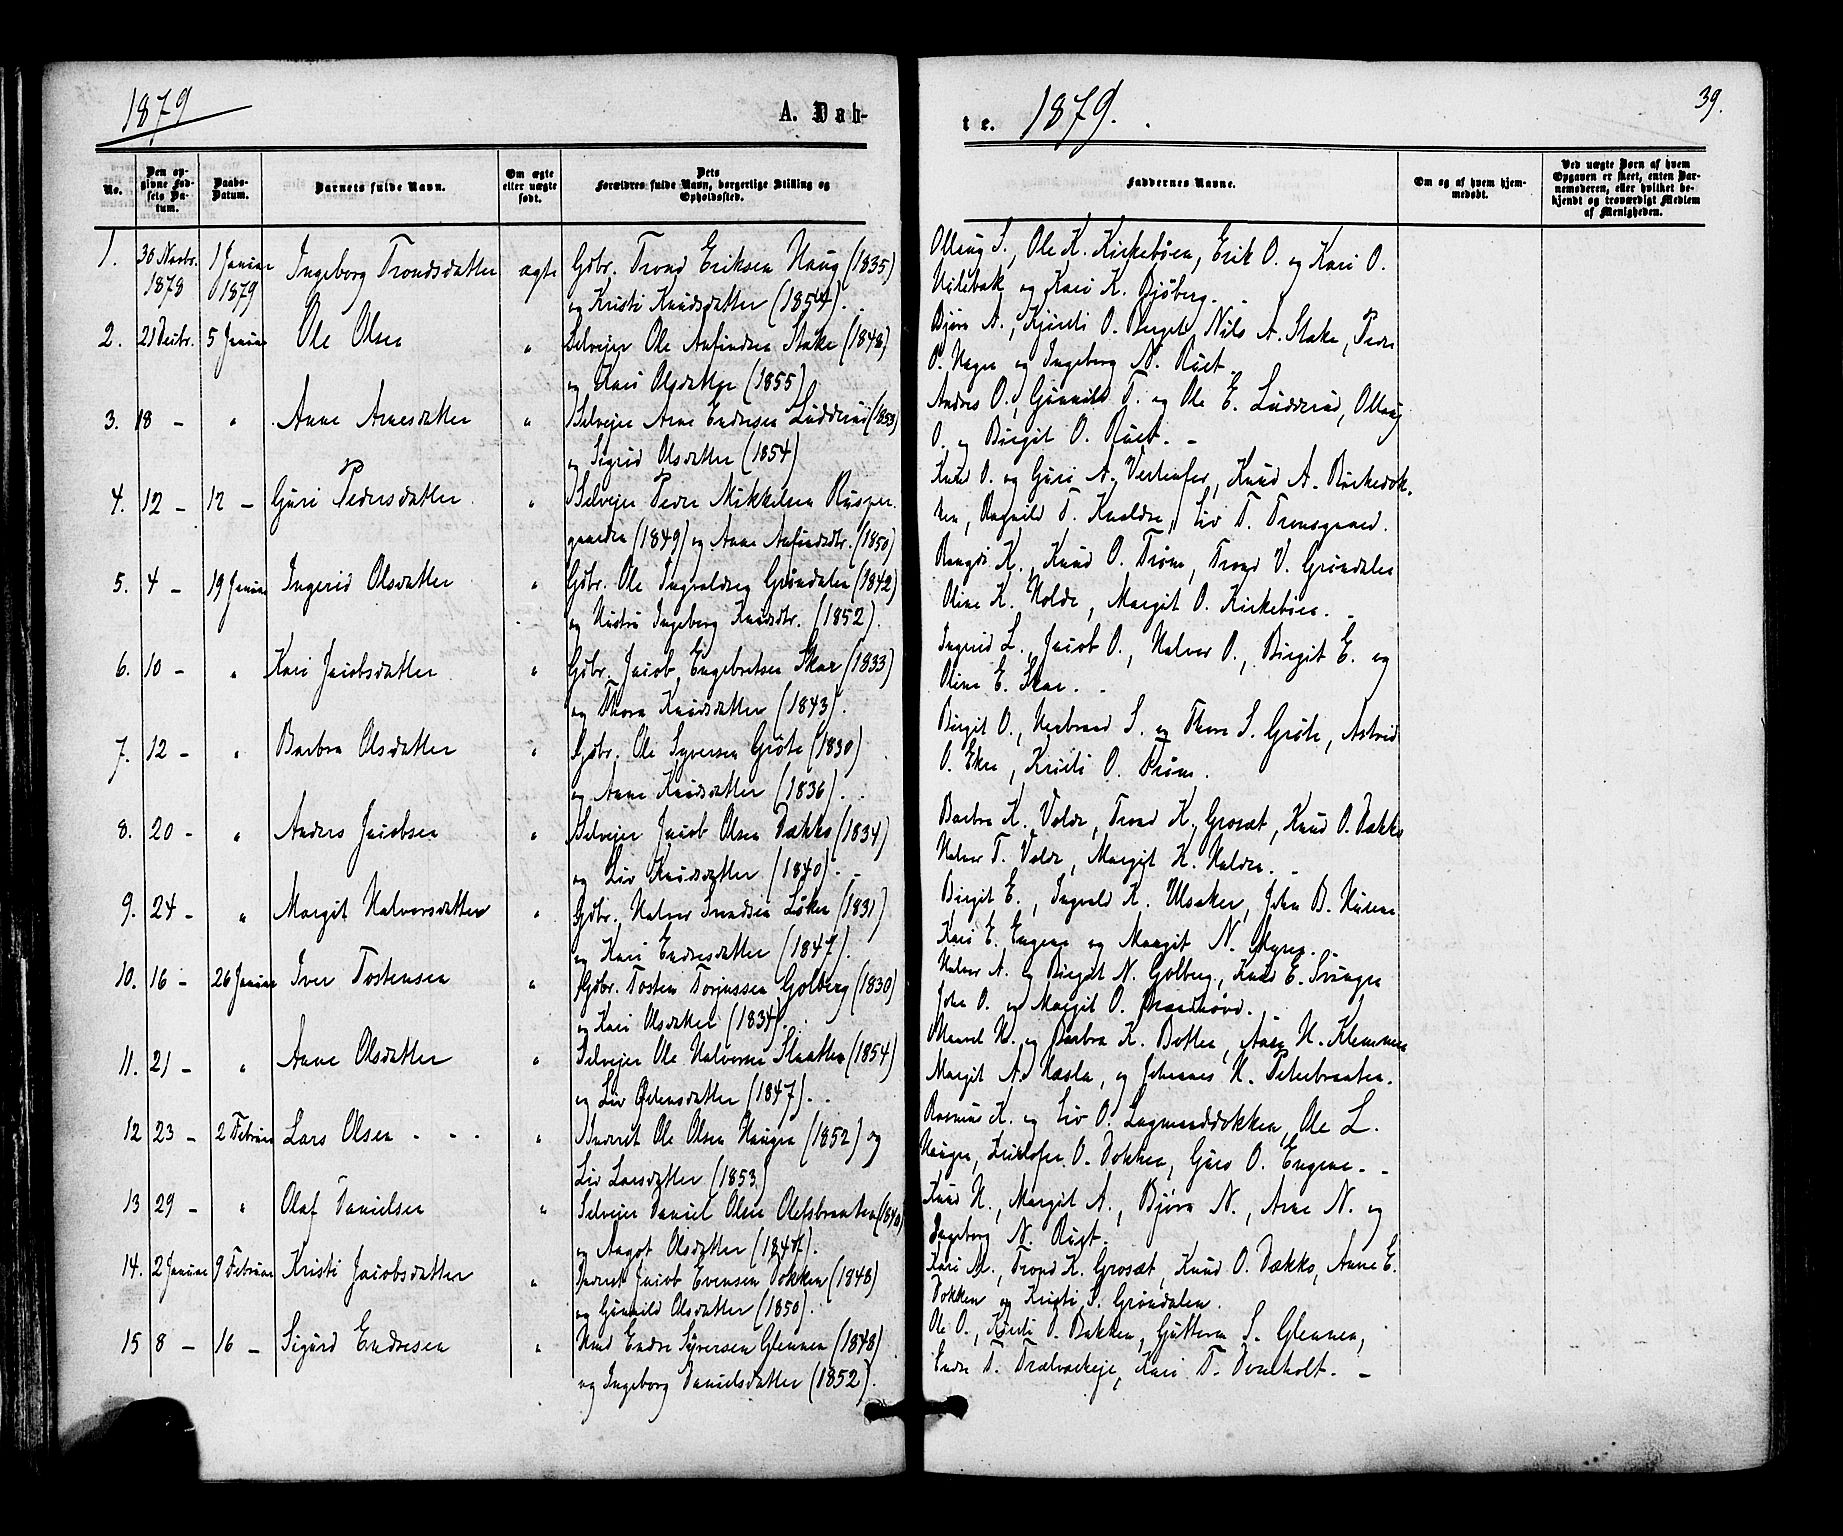 1879
A. Døb-
No.
Den op-
givne Fød-
sels Da-
tum.
Daabs-
Datum.
Barnets fulde Navn.
Om ægte
eller uægte
født.
Dets
Forældres fulde Navn, borgerlige Stilling og
Opholdssted.
1. 30 Novbr. 1 Januar Ingeborg Trondsdatter ægte Gdbr. Trond Eriksen Haug (1835)
1878 1879 og Kristi Knudsdatter (1854).
2. 21 Decbr. 5 Januar Ole Olsen " Selveier Ole Anfindsen Stake (1848)
og Kari Olsdatter (1855)
3. 18 - " Anne Arnesdatter " Selveier Arne Endresen Ludderud (1853)
og Sigrid Olsdatter (1854)
4. 12 - 12 - Guri Pedersdatter " Selveier Peder Mikkelsen
(1849) og Anne Anfindsdtr. (1850)
5. 4 - 19 Januar Ingerid Olsdatter " Gdbr. Ole Ingvaldsen Grøndalen (1842)
og Hustru Ingeborg Knudsdtr. (1852).
6. 10 - " Kari Jacobsdatter " Gdbr. Jacob Engebretsen Skar (1833)
og Thora Knudsdatter (1843).
7. 12 - " Barbra Olsdatter " Gdbr. Ole Syversen Grøte (1830)
og Anne Knudsdatter (1836).
8. 20 - " Anders Jacobsen " Selveier Jacob Olsen Dækko (1834)
og Liv Knudsdatter (1840).
9. 24 - " Margit Halvorsdatter " Gdbr. Halvor Svendsen Løken (1831)
og Kari Endresdatter (1847).
10. 16 - 26 Januar Iver Tostensen " Gdbr. Tosten Torjussen Golberg (1830)
og Kari Olsdatter (1834).
11. 21 - " Anne Olsdatter " Selveier Ole Halvorsen Slaatten (1854)
og Liv (1847).
12 23 - 2 Februar Lars Olsen - - . " Inderst Ole Olsen Haugen (1852) og
Liv Larsdatter (1853)
13 29 - " Olaf Danielsen " Selveier Daniel Olsen Olelsbraaten
og Aagot Olsdatter (1847).
14. 2 Januar 9 Februar Kristi Jacobsdatter " Inderst Jacob Evensen Dokken (1848)
og Gunild Olsdatter (1850).
15 8 - 16 - Sigurd Endresen " Hmd Endre Syversen Glennen (1848)
og Ingeborg Danielsdatter (1852).
te. 1879.
39.
Faddernes Navne.
Om og af hvem hjem-
medøbt.
Ved uægte Børn af hvem
Opgaven er skeet, enten Bar-
nemoderen, eller hvilket be-
kjendt og troværdigt Medlem
af Menigheden.
Ollaug S., Ole K. Kirkebøen, Erik O. og Kari O.
og Kari K. Bjøberg.
Bjørn A., Kjersti O. Berget, Nils A. Stake, Peder
P. Hagen og Ingeborg N. Rust
Andres O., Gunnild T. og Ole E. Ludderud, Ollaug
O. og Birgit O. Rust. -
Knud O. og Guri A. Vestenfor, Knud A.
Ragnild T. Liv T. Trondsgaard.
K., Knud O. Trøm, Trond V. Grøndalen
Oline K. Holde, Margit O. Kirkebøen. -
Ingerid L., Jacob O., Halvor O., Birgit E. og
Oline E. Skar.
Birgit O., Herbrand S. og Thore S. Grøte, Astrid
O. Eker, Kristi O. Trøm.
Barbra K. Volde, Trond K. Grosæt, Knud O. Dækko
Halvor T. Volde, Margit K. Halden. -
Birgit E., Ingvald K. Ulsaker, John B.
Kari E. Engene og Margit N. Myren. -
Halvor A. og Birgit N. Golberg, Knud E. Svingen
John O. og Margit O.
H. og Barbra K. Botten, H. Klemmen
Margit A. Hesla, og Johannes H. Peterbraaten.
Rasmus K. og Liv O. Lagmanddokken, Ole L.
Haugen, Kristofer O. Dokken, Guro O. Engene. -
Knud H., Margit A., Bjørn N., Arne N. og
Ingeborg N. Rust.
Kari M., Trond K. Grosæt, Knud O. Dækko, Anne E.
Dokken og Kristi S. Grøndalen.
Ole O., Kristi O. Bakken, Guttorm S. Glennen,
Endre T. Kari T. -